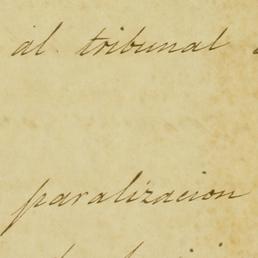 al tribunal
paralizacion